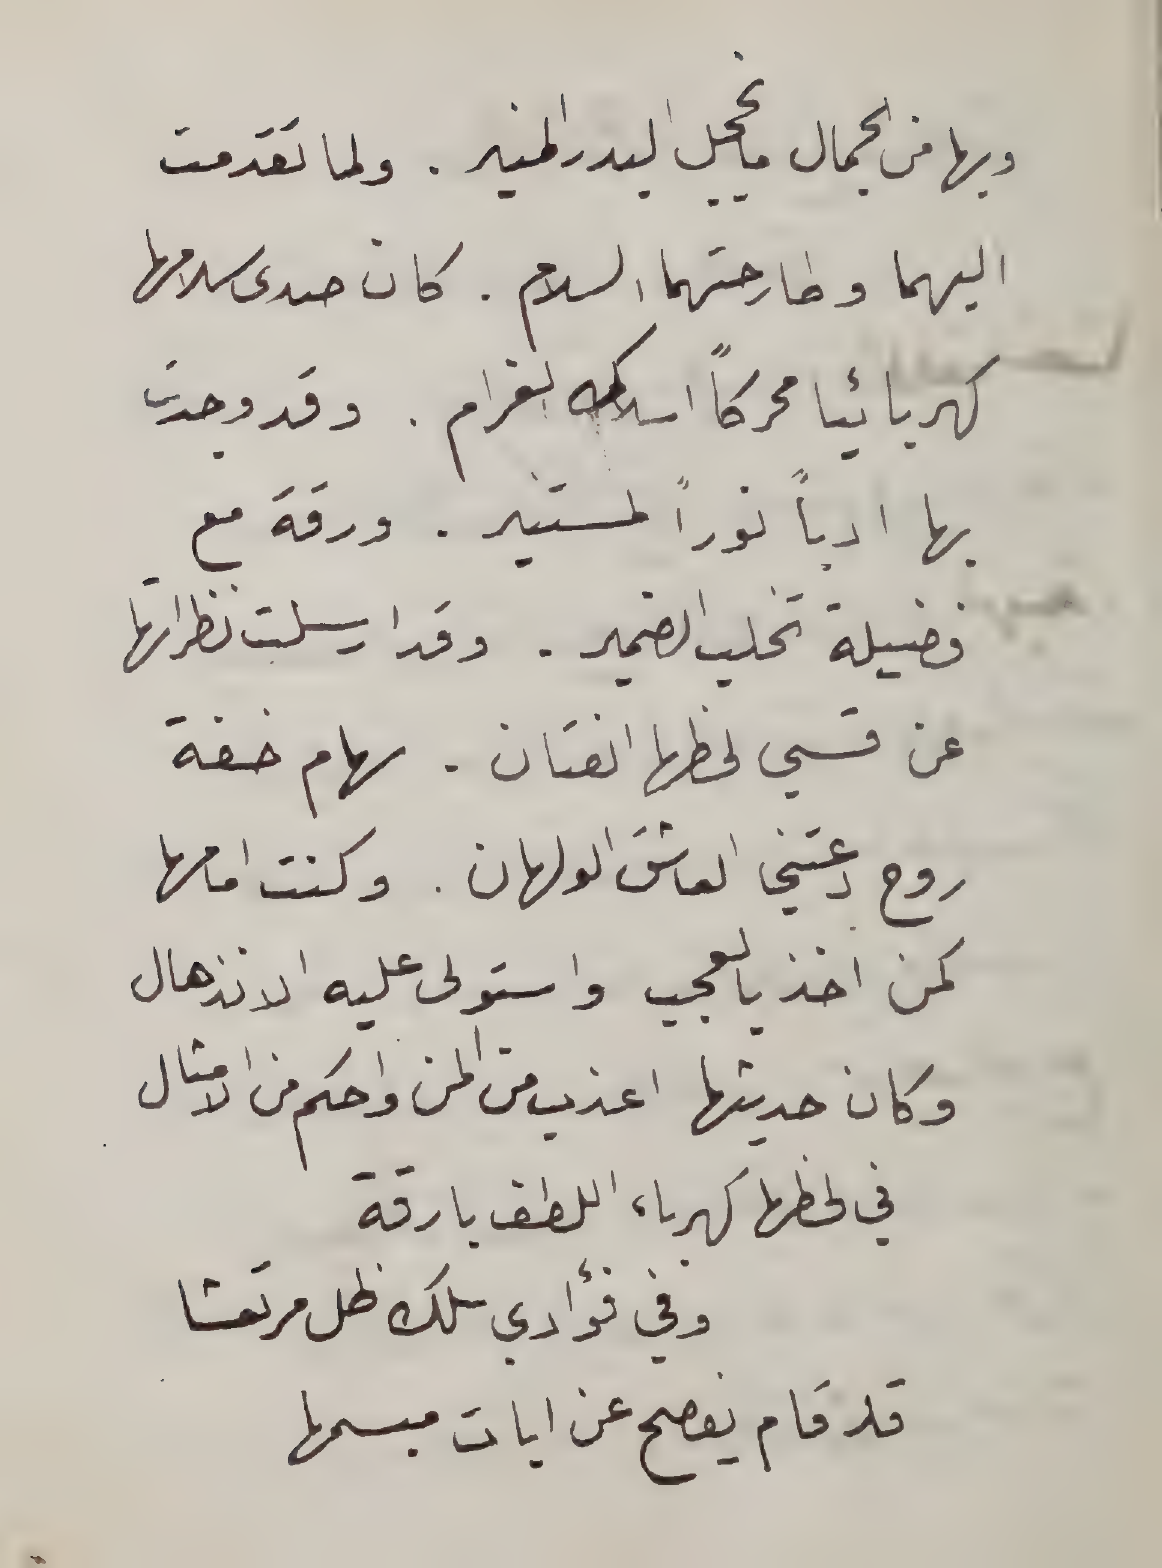 وبها من الجمال ما يخجل البدر المنير . ولما تقدمت
اليهما وطارحتهما السلام . كان صدى سلامها
كهربائيا محركاً اسلاك الغرام . وقد وجدت
بها ادباً نوراً لمستنير . ورقة مع
فضيلة تخلب الضمير . وقد ارسلت نظراتها
عن قسي لحظها الفتان . سهام خفة
روح دعتني العاشق الولهان . وكنت امامها
كمن اخذ بالعجب واستولى عليه الانذهال
وكان حديثها اعذب من المن واحكم من الامثال
في لحظها كهرباء اللطف بارقة
وفي فؤادي سلك ظل مرتعشا
قد قام يفصح عن ايات مبسمها